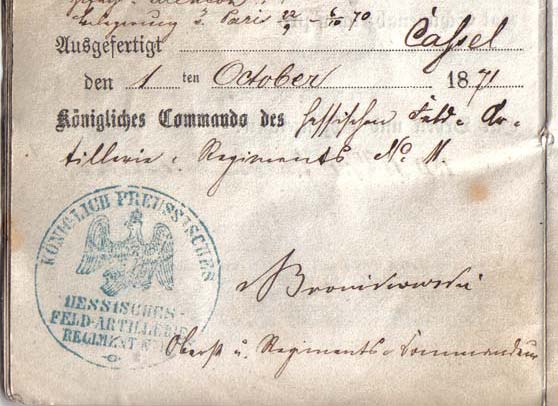 Belagerung v. Paris 22/9 – 6/10 70
Ausgefertigt Cassel
den 1ten October 1871
Königliches Commando des Hessischen Feld-Ar-
tillerie-Regiments No. 11.
KÖNIGLICH PREUSSISCHES
HESSISCHES-
FELD-ARTILLERIE
REGIMENT N
Bronikowski
Oberst u. Regiments-Commandeur